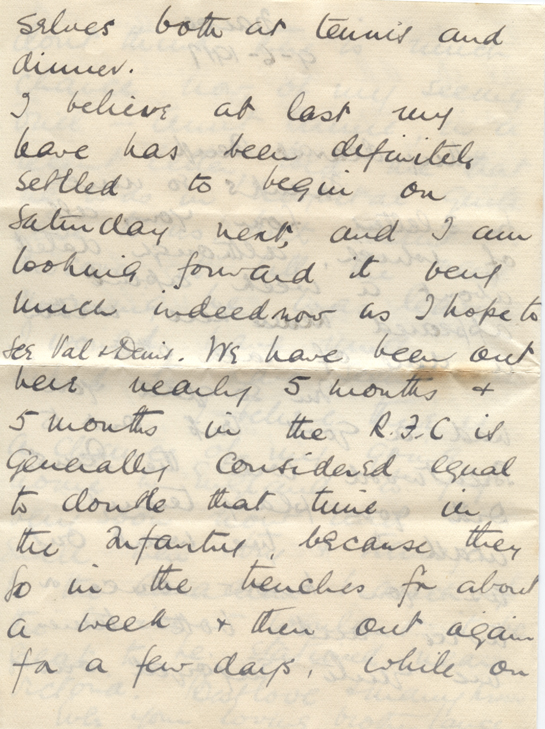 selves both at tennis and
dinner.
I believe at last my
leave has been definitely
settled to begin on
Saturday next, and I am
looking forward it very
much indeed now as I hope to
see Val & Denis. We have been out
here nearly 5 months &
5 months in the R.F.C is
generally considered equal
to double that time in
the Infantry, because they
go in the trenches for about
a week & then out again
for a few days, while on